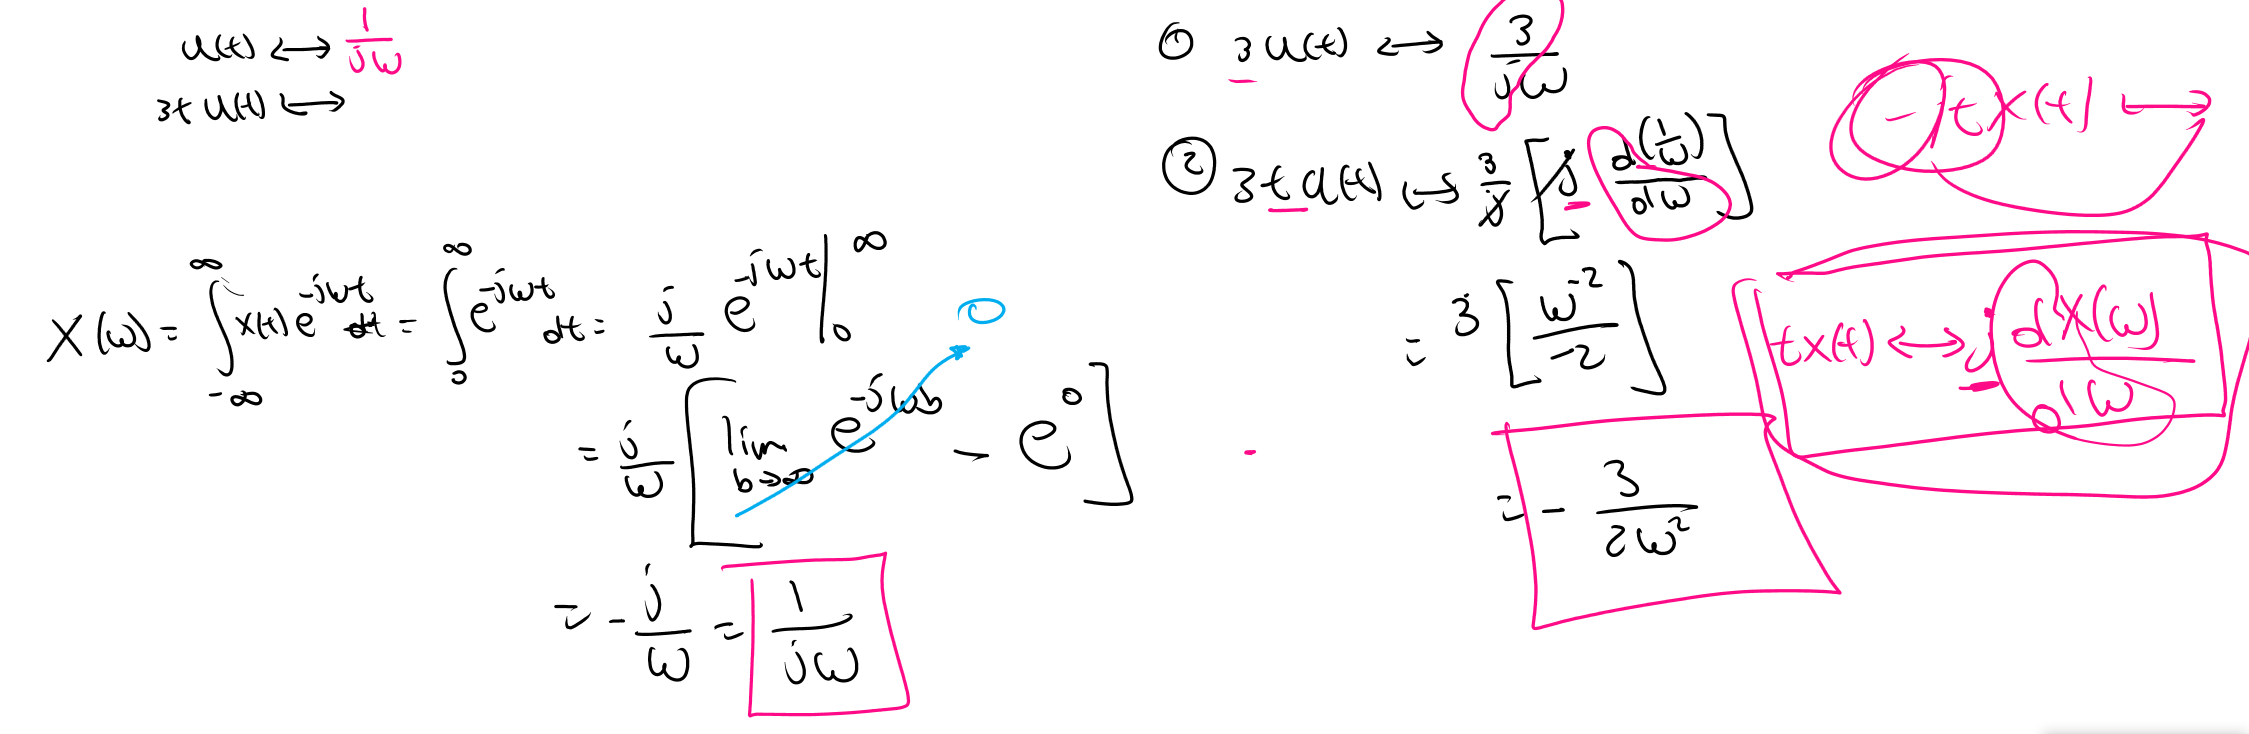 u(t) ↔ 1/jω
3t u(t) ↔
X(ω) = ∫_{-∞}^{∞} x(t) e^{-jωt} dt = ∫_0^∞ e^{-jωt} dt = j/ω e^{-jωt} |_0^∞
= j/ω [ lim_{b→∞} e^{-jωb} - e^0 ]
0
= - j/ω = 1/jω
① 3 u(t) ↔ 3/jω
② 3t u(t) ↔ 3/j [ j d(1/ω)/dω ]
= 3 [ ω^{-2}/-2 ]
= - 3/2ω^2
-t x(t) ↔
t x(t) ↔ j dX(ω)/dω